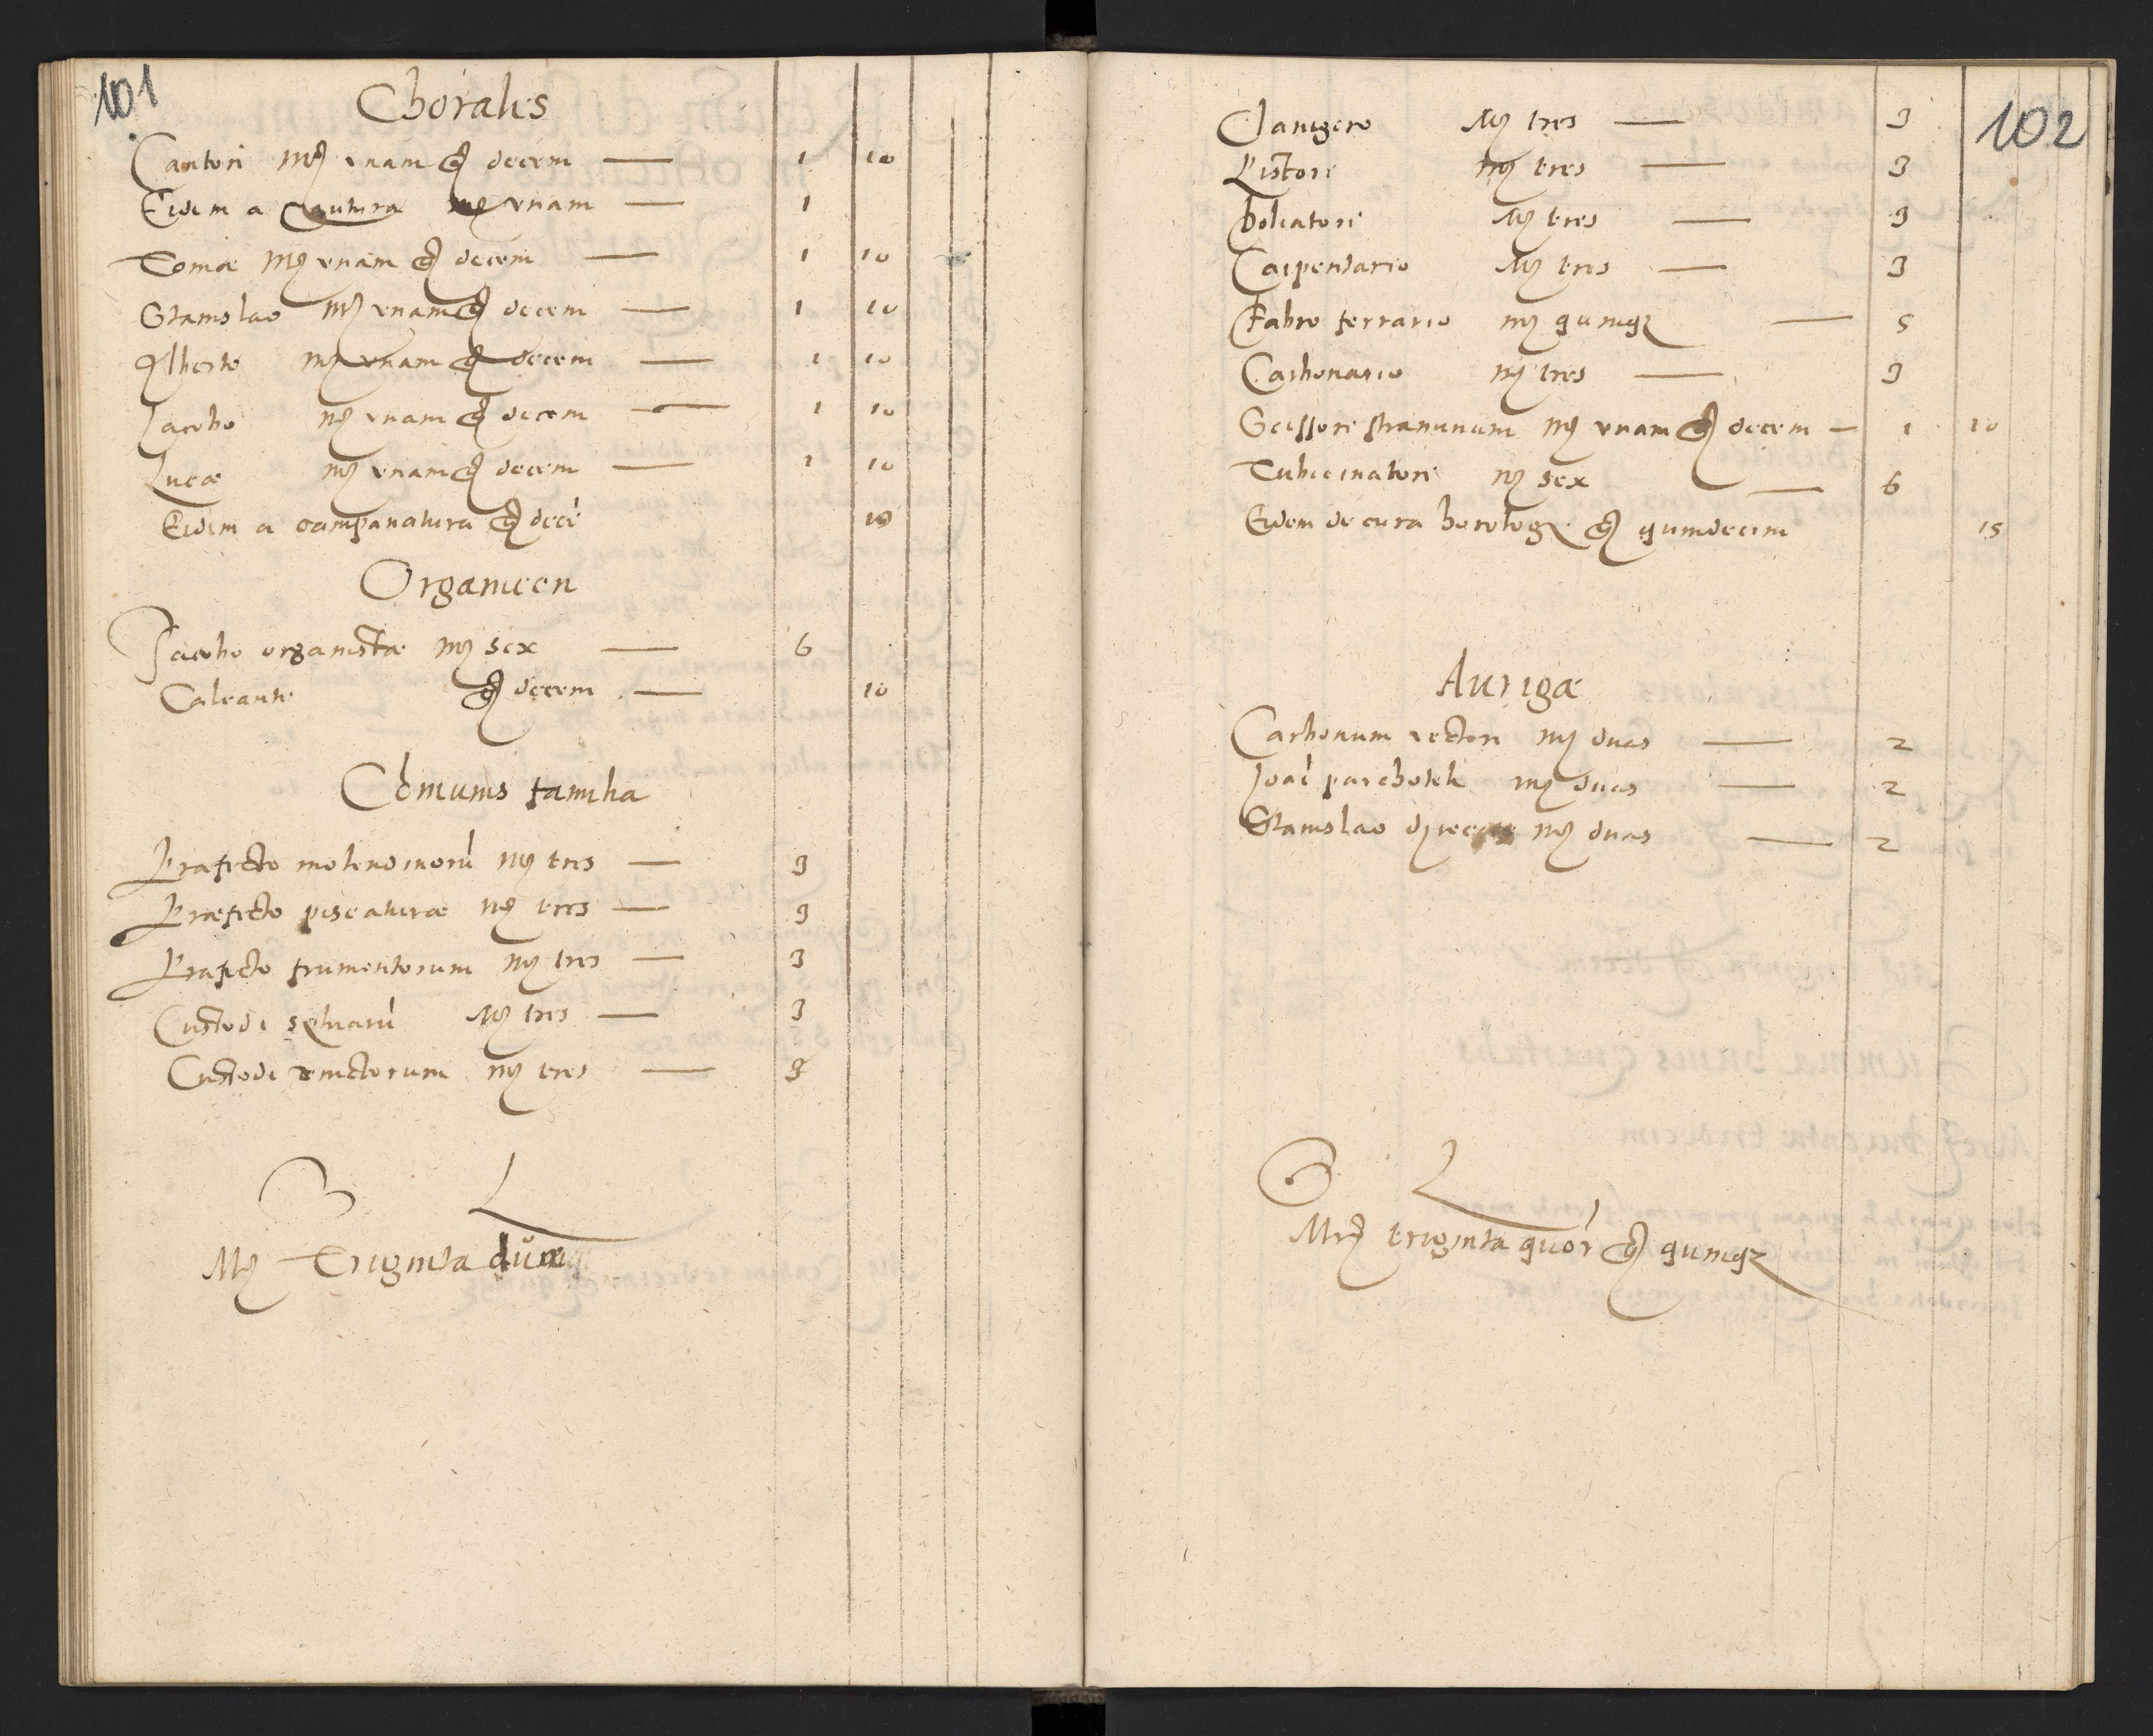 101
Choralis
Cantori mrc unam gr decem — 1 10
Eidem a mrc unam — 1
Tomæ mrc unam gr decem — 1 10
Stanislao mrc unam gr decem — 1 10
Alberto mrc unam gr decem — 1 10
Jacobo mrc unam gr decem — 1 10
Lucæ mrc unam gr decem — 1 10
Eidem a campanatura gr decē 10
Organicen
Jacobo organistæ mrc sex — 6
Calcanti gr decem — 10
Cōmunis familia
Præfecto molendinorū mrc tres — 3
Præfecto piscaturæ mrc tres — 3
Præfecto frumentorum mrc tres — 3
Custodi sylvarū mrc tres — 3
Custodi mrc tres — 3
Mrc Triginta duæ
102
Clavigero mrc tres — 3
Pistori mrc tres — 3
Doliatori mrc tres — 3
Carpentario mrc tres — 3
Fabro ferrario mrc quinqz — 5
Carbonario mrc tres — 3
Scissori straminum mrc unam gr decem — 1 10
Tubicinatori mrc sex — 6
Eidem de cura horologii gr quindecim 15
Aurigæ
Carbonum vectori mrc duas — 2
Joāi parcholek mrc duas — 2
Stanislao mrc duas — 2
Mrc triginta quōr gr quinqz